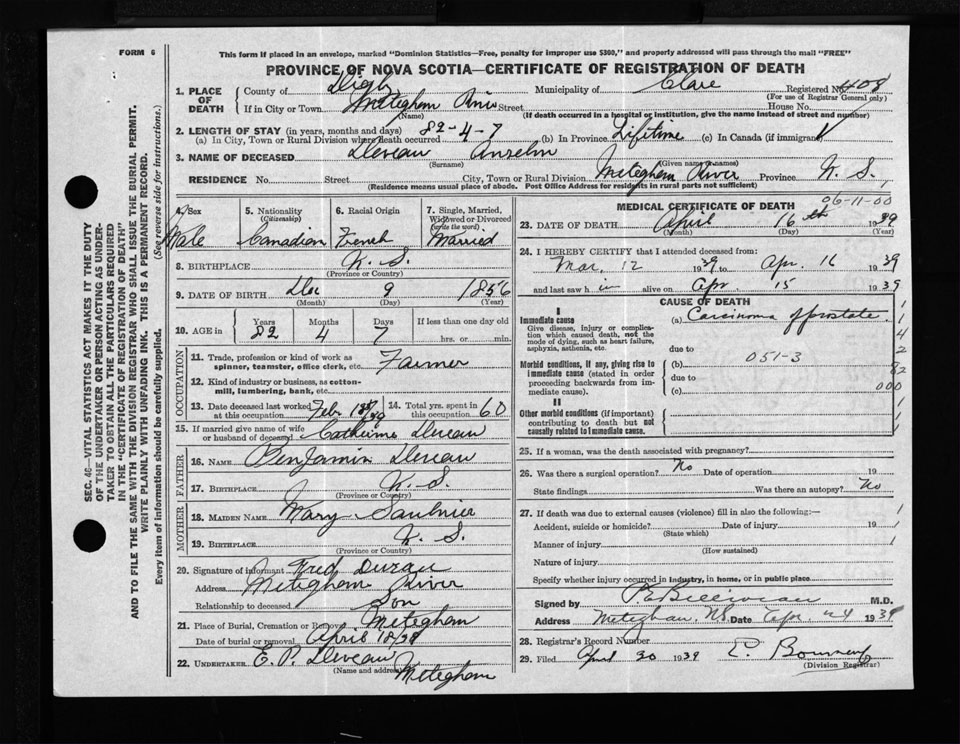 FORM 6
This form if placed in an envelope, marked "Dominion Statistics—Free, penalty for improper use $300," and properly addressed will pass through the mail "FREE"
PROVINCE OF NOVA SCOTIA—CERTIFICATE OF REGISTRATION OF DEATH
1. PLACE OF DEATH County of Digby Municipality of Clare Registered No. 408
(For use of Registrar General only)
If in City or Town Meteghan River Street House No.
(Name) (If death occurred in a hospital or institution, give the name instead of street and number)
2. LENGTH OF STAY (in years, months and days)
(a) In City, Town or Rural Division where death occurred 82-4-7 (b) In Province Lifetime (c) In Canada (if immigrant)
3. NAME OF DECEASED Deveau Anselm
(Surname) (Given name or names)
RESIDENCE No. Street City, Town or Rural Division Meteghan River Province N. S.
(Residence means usual place of abode. Post Office Address for residents in rural parts not sufficient)
4. Sex Male
5. Nationality (Citizenship) Canadian
6. Racial Origin French
7. Single, Married, Widowed or Divorced (write the word) Married
8. BIRTHPLACE N. S.
(Province or Country)
9. DATE OF BIRTH Dec 9 1856
(Month) (Day) (Year)
10. AGE in Years 82 Months 4 Days 7 If less than one day old
hrs. or min.
OCCUPATION
11. Trade, profession or kind of work as spinner, teamster, office clerk, etc. Farmer
12. Kind of industry or business, as cotton-mill, lumbering, bank, etc.
13. Date deceased last worked at this occupation Feb.
14. Total yrs. spent in this occupation 60
15. If married give name of wife or husband of deceased Catherine Deveau
FATHER
16. NAME Benjamin Deveau
17. BIRTHPLACE N. S.
(Province or Country)
MOTHER
18. MAIDEN NAME Mary Saulnier
19. BIRTHPLACE N. S.
(Province or Country)
20. Signature of informant Fred
Address Meteghan River
Relationship to deceased Son
21. Place of Burial, Cremation or Removal Meteghan
Date of burial or removal April 18/39
22. UNDERTAKER E. P. Deveau
(Name and address) Meteghan
MEDICAL CERTIFICATE OF DEATH
96-11-00
23. DATE OF DEATH April 16th 1939
(Month) (Day) (Year)
24. I HEREBY CERTIFY that I attended deceased from:
Mar. 12 1939 to Apr. 16 1939
and last saw him alive on Apr. 15 1939
CAUSE OF DEATH
I
Immediate cause (a) Carcinoma of prostate
Give disease, injury or complication which caused death, not the mode of dying, such as heart failure, asphyxia, asthenia, etc.
due to
051-3
Morbid conditions, if any, giving rise to immediate cause (stated in order proceeding backwards from immediate cause). (b)
due to
(c)
1
4
2
82
000
II
Other morbid conditions (if important) contributing to death but not causally related to immediate cause.
25. If a woman, was the death associated with pregnancy?
26. Was there a surgical operation? No Date of operation 19
State findings Was there an autopsy? No
27. If death was due to external causes (violence) fill in also the following:—
Accident, suicide or homicide? Date of injury 19
(State which)
Manner of injury
(How sustained)
Nature of injury
Specify whether injury occurred in industry, in home, or in public place
Signed by M.D.
Address Meteghan, N.S. Date Apr 24 1939
28. Registrar's Record Number
29. Filed April 30 1939
(Division Registrar)
SEC. 46—VITAL STATISTICS ACT MAKES IT THE DUTY
OF THE UNDERTAKER OR PERSON ACTING AS UNDER-
TAKER TO OBTAIN ALL THE PARTICULARS REQUIRED
IN THE "CERTIFICATE OF REGISTRATION OF DEATH"
AND TO FILE THE SAME WITH THE DIVISION REGISTRAR WHO SHALL ISSUE THE BURIAL PERMIT.
WRITE PLAINLY WITH UNFADING INK. THIS IS A PERMANENT RECORD.
Every item of information should be carefully supplied. (See reverse side for instructions.)